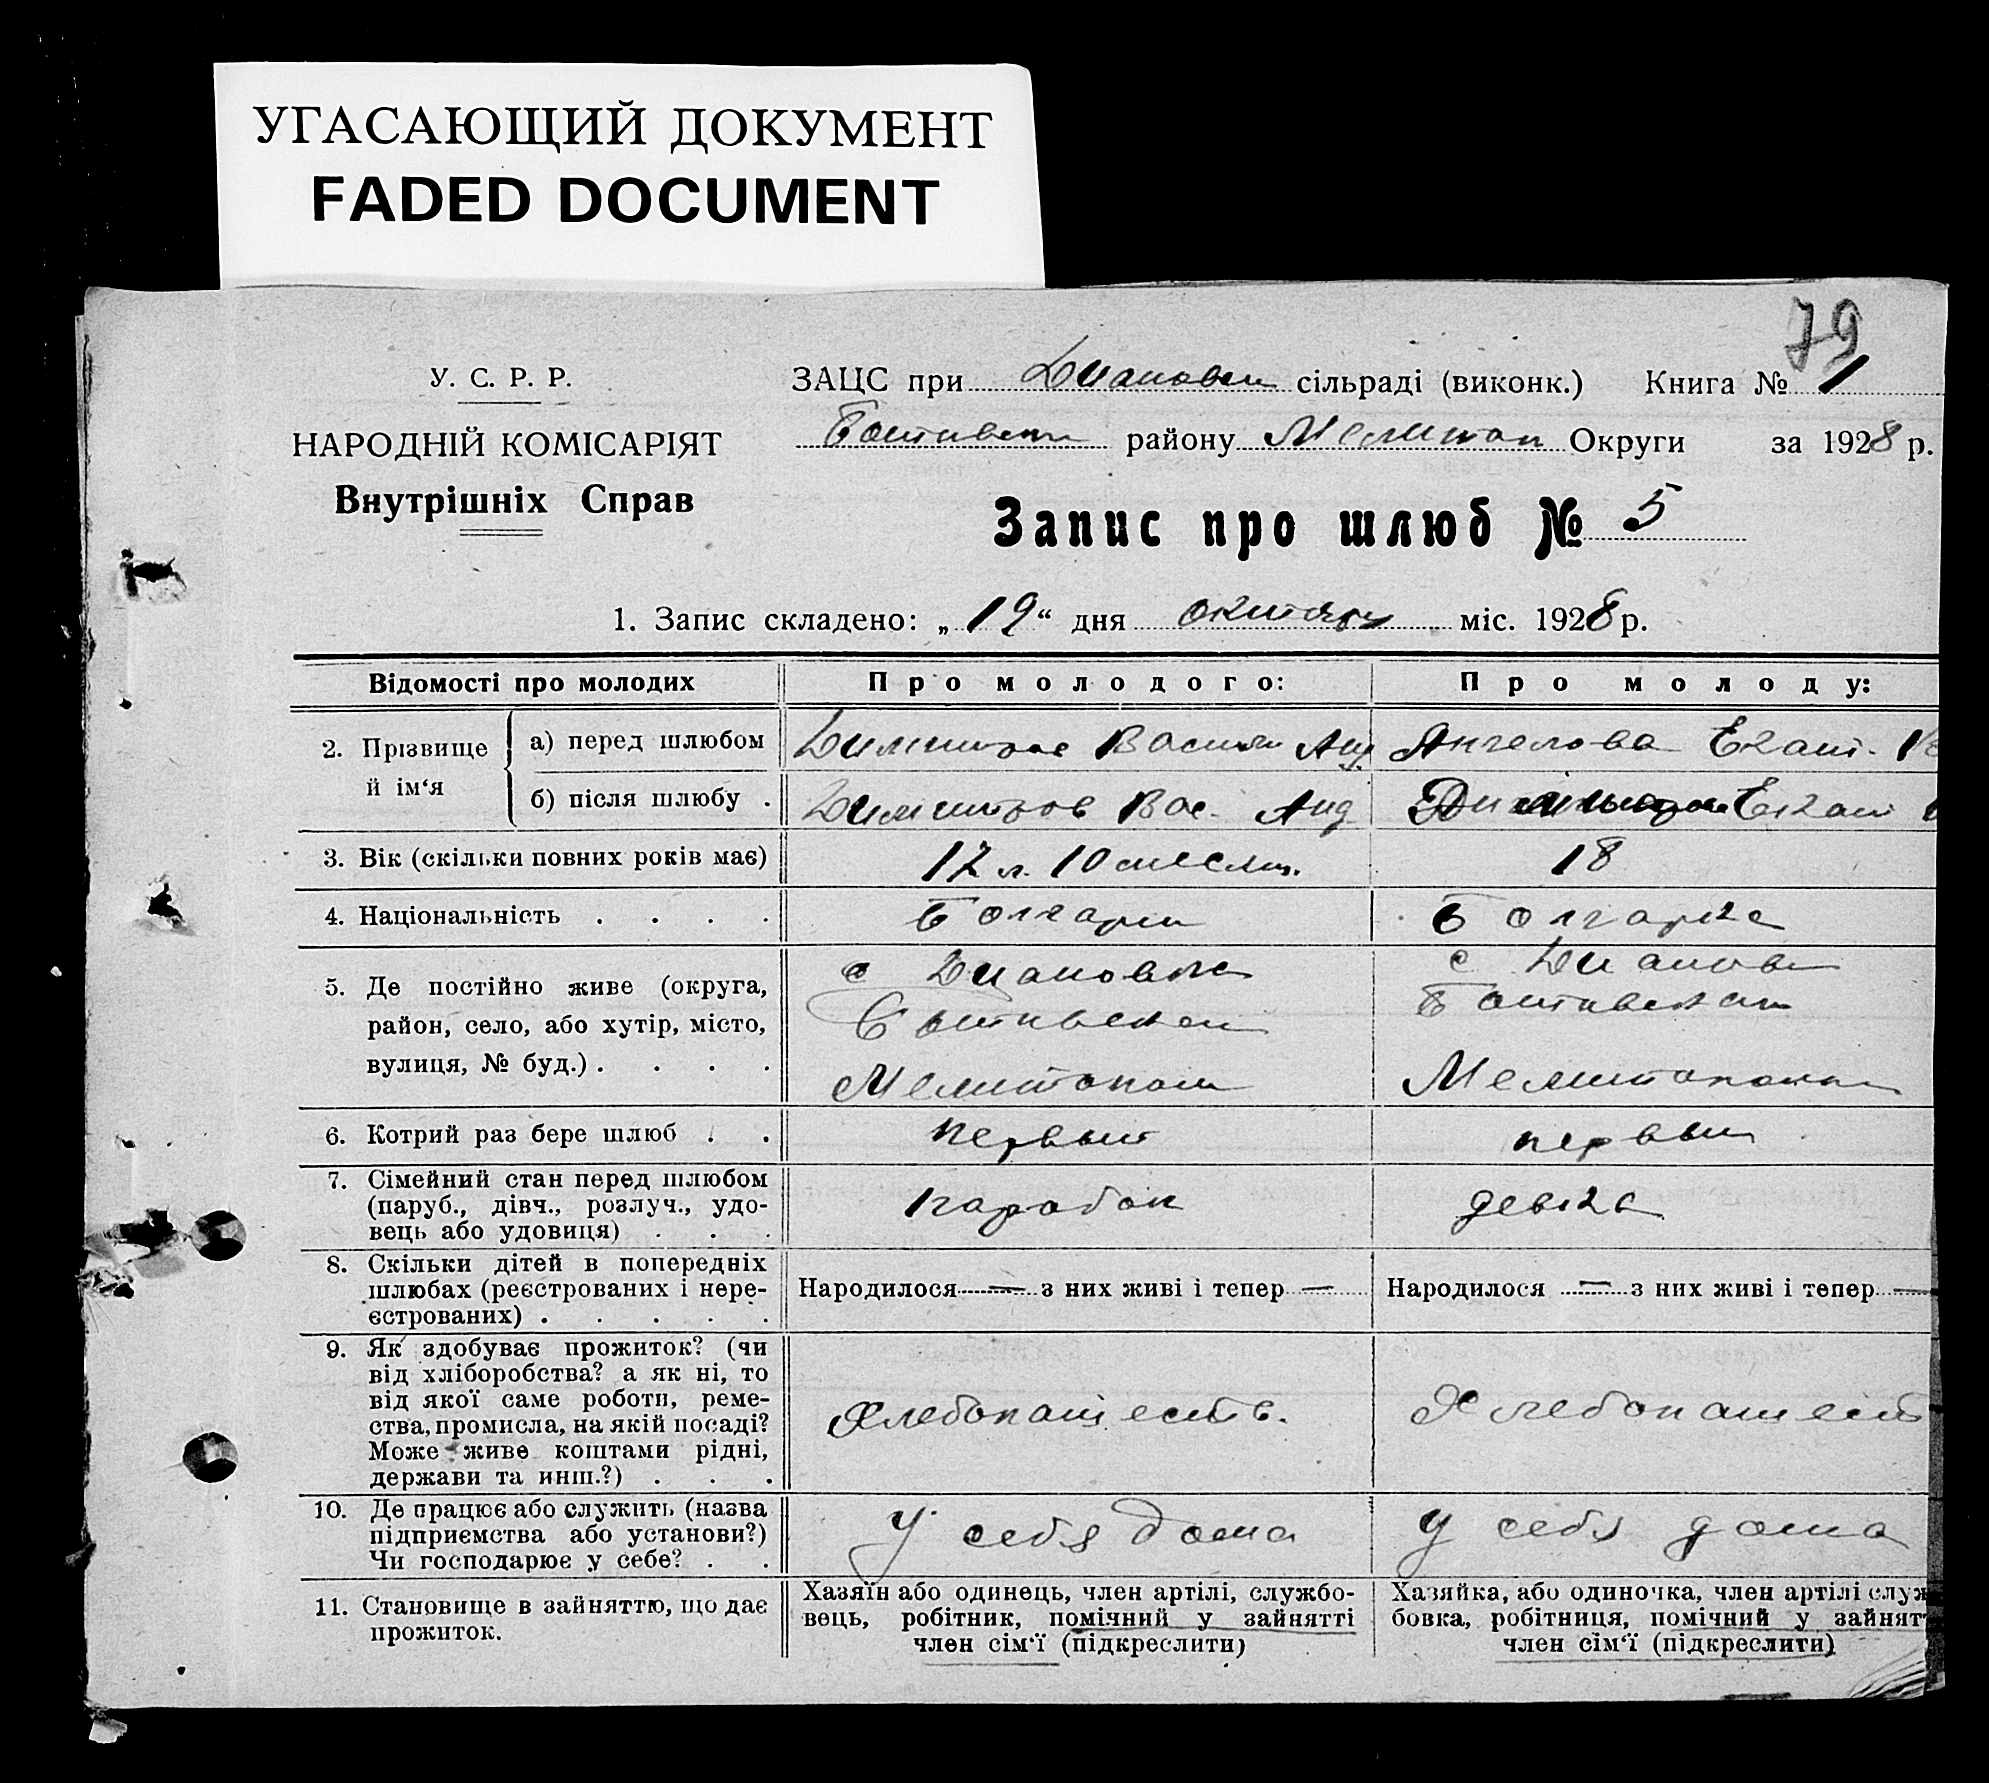 УГАСАЮЩИЙ ДОКУМЕНТ
FADED DOCUMENT
79
У. С. Р. Р.
НАРОДНІЙ КОМІСАРІЯТ
Внутрішніх Справ
ЗАЦС при Диановск сільраді (виконк.) Книга № 1
Ботиевск району Мелитоп Округи за 1928 р.
Запис про шлюб № 5
1. Запис складено: „19“ дня октября міс. 1928 р.
Відомості про молодих Про молодого: Про молоду:
2. Прізвище й ім‘я
а) перед шлюбом Димитров Васили Анд Ангелова Екат.
б) після шлюбу . Димитров Вас. Анд Екат
3. Вік (скільки повних років має) 17 л. 10 месяц. 18
4. Національність . . . . Болгарин Болгарка
5. Де постійно живе (округа,
район, село, або хутір, місто,
вулиця, № буд.) . . . .
с Диановка
Ботиевской
Мелитопол
с Дианов
Ботиевском
Мелитополь
6. Котрий раз бере шлюб . . первый первый
7. Сімейний стан перед шлюбом
(паруб., дівч., розлуч., удо-
вець або удовиця) . . .
паробок девка
8. Скільки дітей в попередніх
шлюбах (реєстрованих і нере-
єстрованих) . . . . .
Народилося — з них живі і тепер — Народилося — з них живі і тепер —
9. Як здобуває прожиток? (чи
від хліборобства? а як ні, то
від якої саме роботи, реме-
ства, промисла, на якій посаді?
Може живе коштами рідні,
держави та инш.?) . . .
Хлебопашеств. Хлебопашест
10. Де працює або служить (назва
підприємства або установи?)
Чи господарює у себе? . .
У себя дома У себя дома
11. Становище в зайняттю, що дає
прожиток.
Хазяїн або одинець, член артілі, службо-
вець, робітник, помічний у зайнятті
член сім‘ї (підкреслити)
Хазяйка, або одиночка, член артілі служ
бовка, робітниця, помічний у зайнят
член сім‘ї (підкреслити)